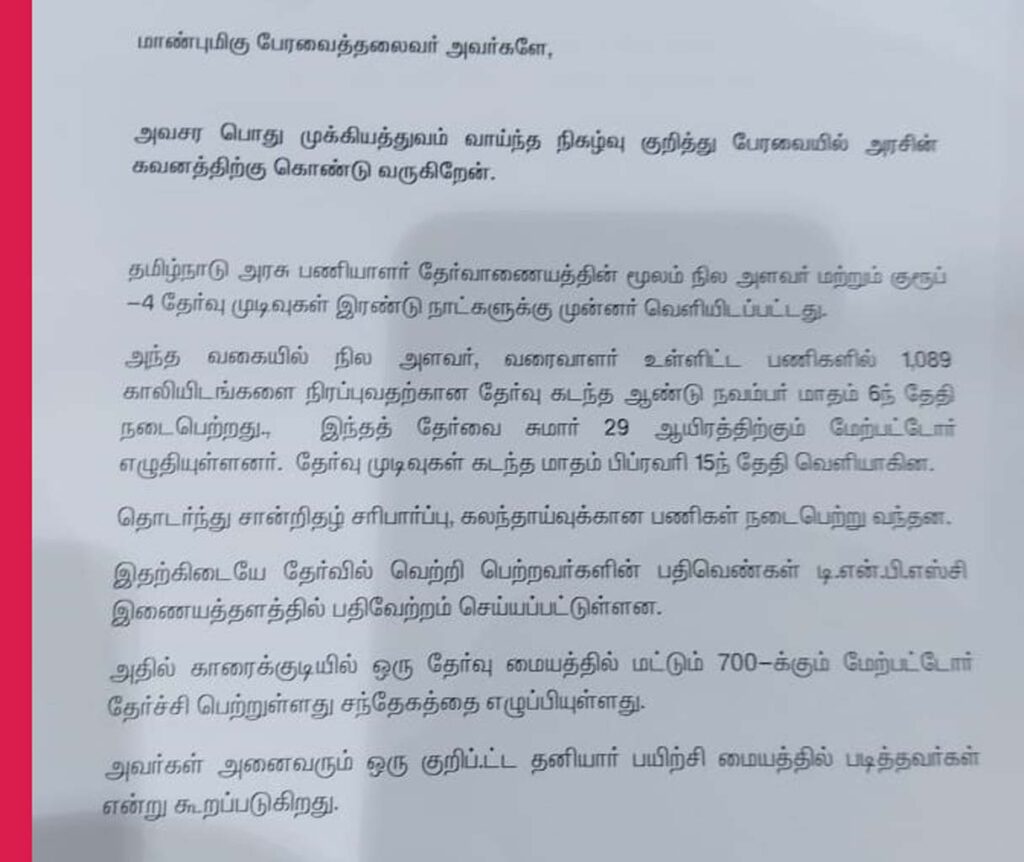 மாண்புமிகு பேரவைத்தலைவர் அவர்களே,
அவசர பொது முக்கியத்துவம் வாய்ந்த நிகழ்வு குறித்து பேரவையில் அரசின்
கவனத்திற்கு கொண்டு வருகிறேன்.
தமிழ்நாடு அரசு பணியாளர் தேர்வாணையத்தின் மூலம் நில அளவர் மற்றும் குரூப்
-4 தேர்வு முடிவுகள் இரண்டு நாட்களுக்கு முன்னர் வெளியிடப்பட்டது.
அந்த வகையில் நில அளவர், வரைவாளர் உள்ளிட்ட பணிகளில் 1,089
காலியிடங்களை நிரப்புவதற்கான தேர்வு கடந்த ஆண்டு நவம்பர் மாதம் 6ந் தேதி
நடைபெற்றது., இந்தத் தேர்வை சுமார் 29 ஆயிரத்திற்கும் மேற்பட்டோர்
எழுதியுள்ளனர். தேர்வு முடிவுகள் கடந்த மாதம் பிப்ரவரி 15ந் தேதி வெளியாகின.
தொடர்ந்து சான்றிதழ் சரிபார்ப்பு, கலந்தாய்வுக்கான பணிகள் நடைபெற்று வந்தன.
இதற்கிடையே தேர்வில் வெற்றி பெற்றவர்களின் பதிவெண்கள் டி.என்.பி.எஸ்சி
இணையத்தளத்தில் பதிவேற்றம் செய்யப்பட்டுள்ளன.
அதில் காரைக்குடியில் ஒரு தேர்வு மையத்தில் மட்டும் 700-க்கும் மேற்பட்டோர்
தேர்ச்சி பெற்றுள்ளது சந்தேகத்தை எழுப்பியுள்ளது.
அவர்கள் அனைவரும் ஒரு குறிப்.ட்ட தனியார் பயிற்சி மையத்தில் படித்தவர்கள்
என்று கூறப்படுகிறது.